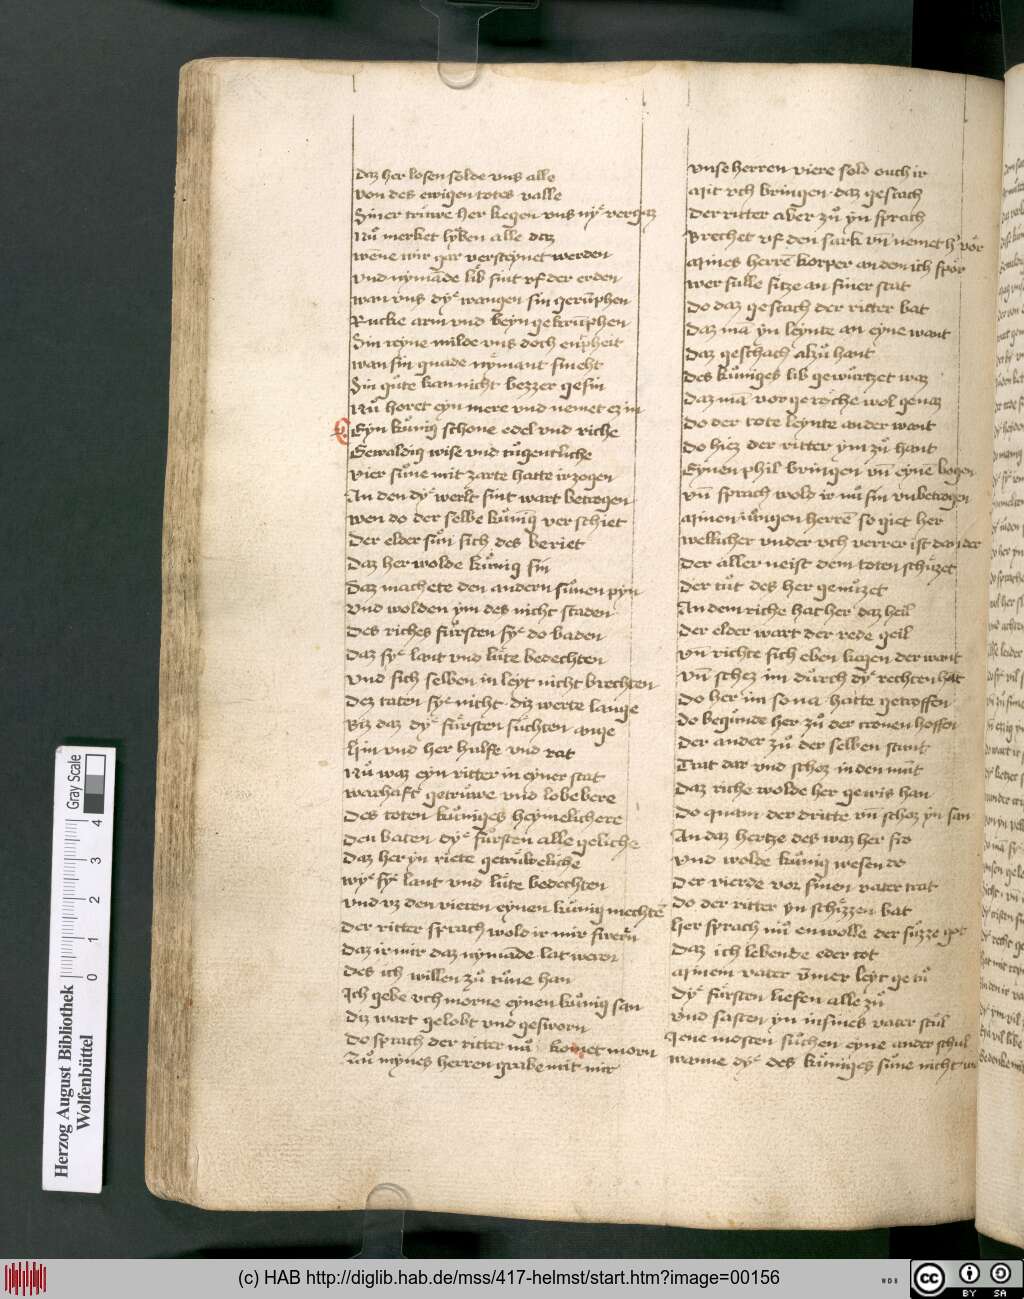 daz her losen solde vns alle
von des ewigen totes valle
Siner truͤwe her kegen vns nye vergaz
Nuͦ merket lyben alle daz
wene wir gar versteynet werden
vnd nymāde lib sint vf der erden
wan vns dye wangen sin geruͤmphen
Rucke arm vnd beyn gekrūphen
Sin reyne milde vns doch enpheit
wan sin gnade nymant smeht
Sin guͤte kan nicht bezzer gesin
Nuͦ horet eyn mere vnd nemet ez in
Eyn kuͤnig schone edel vnd riche
Gewaldig wise vnd tuͦgentliche
vier suͤne mit zarte hatte irzogen
An den dye werlt sint wart betrogen
wen do der selbe kuͤnig verschiet
Der elder suͤn sich des beriet
Daz her wolde kuͤnig sin
Daz machete den andern suͤnen pyn
vnd wolden ym des nicht staden
Des riches fuͤrsten sye do baden
Daz sye lant vnd luͤte bedechten
vnd sich selben in leyt nicht brechten
Dez taten sye nicht· diz werte lange
Biz daz dye fuͤrsten suͤchten ange
Hin vnd her hulffe vnd rat
Nuͦ waz eyn ritter in eyner stat
warhaft getruͤwe vnd lobebere
Des toten kuͤniges heymelichere
Den baten dye fuͤrsten alle geliche
Daz her yn riete getruͤweliche
wye sye lant vnd luͤte bedechten
vnd vz den vieren eynen kuͤnig mechtē
Der ritter sprach wold ir mir swern
Daz ir mir daz nymāde lat weren
Des ich willen zuͦ tuͦne han
Ich gebe vch morne eynen kuͤnig san
Diz wart gelobt vnd gesworn
Do sprach der ritter nuͦ komet morn
Zuͦ mynes herren grabe mit mir
vnse herren viere sold ouch ir
Mit vch bringen· daz geschach
Der ritter aber zuͦ yn sprach
Brechet vf den sark vn̄ nemet her vor
Mines herrē korper an den ich spor
wer sulle sitze an siner stat
Do daz geschach der ritter bat
Daz mā yn leynte an eyne want
Daz geschach alzuͦ hant
Des kuͤniges lib gewuͤrtzet waz
Daz mā vor geroͤche wol genaz
Do der tote leynte ander want
Do hiez der ritter ym zuͦ hant
Eynen phil bringen vn̄ eynē bogen
vn̄ sprach wold ir nuͦ sin vnbetrogen
Minen iuͤngen herrē so giet her
wellicher vnder vch verrer ist dan der
Der aller neist dem toten schuͤzet
Der tuͦt des her genuͤzet
An dem riche hat her daz heil
Der elder wart der rede geil
vn̄ richte sich eben kegen der want
vn̄ schez im duͤrch dye rechten hāt
Do her im so na hatte getroffen
Do beguͤnde her zuͦ der cronen hoffen
Der ander zuͦ der selben stunt
Trat dar vnd schoz in den muͤt
Daz riche wolde her gewis han
Do quam der dritte vn̄ schoz yn san
An daz hertze des waz her fro
vnd wolde kuͤnig wesen do
Der vierde vor sinen vater trat
Do der ritter yn schizzen bat
Her sprach nuͦ enwolle der suͤzze got
Daz ich lebende eder tot
Minem vater ūmer leyt getuͦ
Dye fuͤrsten liefen alle zuͦ
vnd sasten yn in sines vater stuͤl
Iene mosten suͦchen eyne ander schul
wanne dye des kuͤniges suͤne nicht
Herzog August Bibliothek
Wolfenbüttel
0 1 2 3 4
Gray Scale
(c) HAB http://diglib.hab.de/mss/417-helmst/start.htm?image=00156
WDB
cc
BY SA